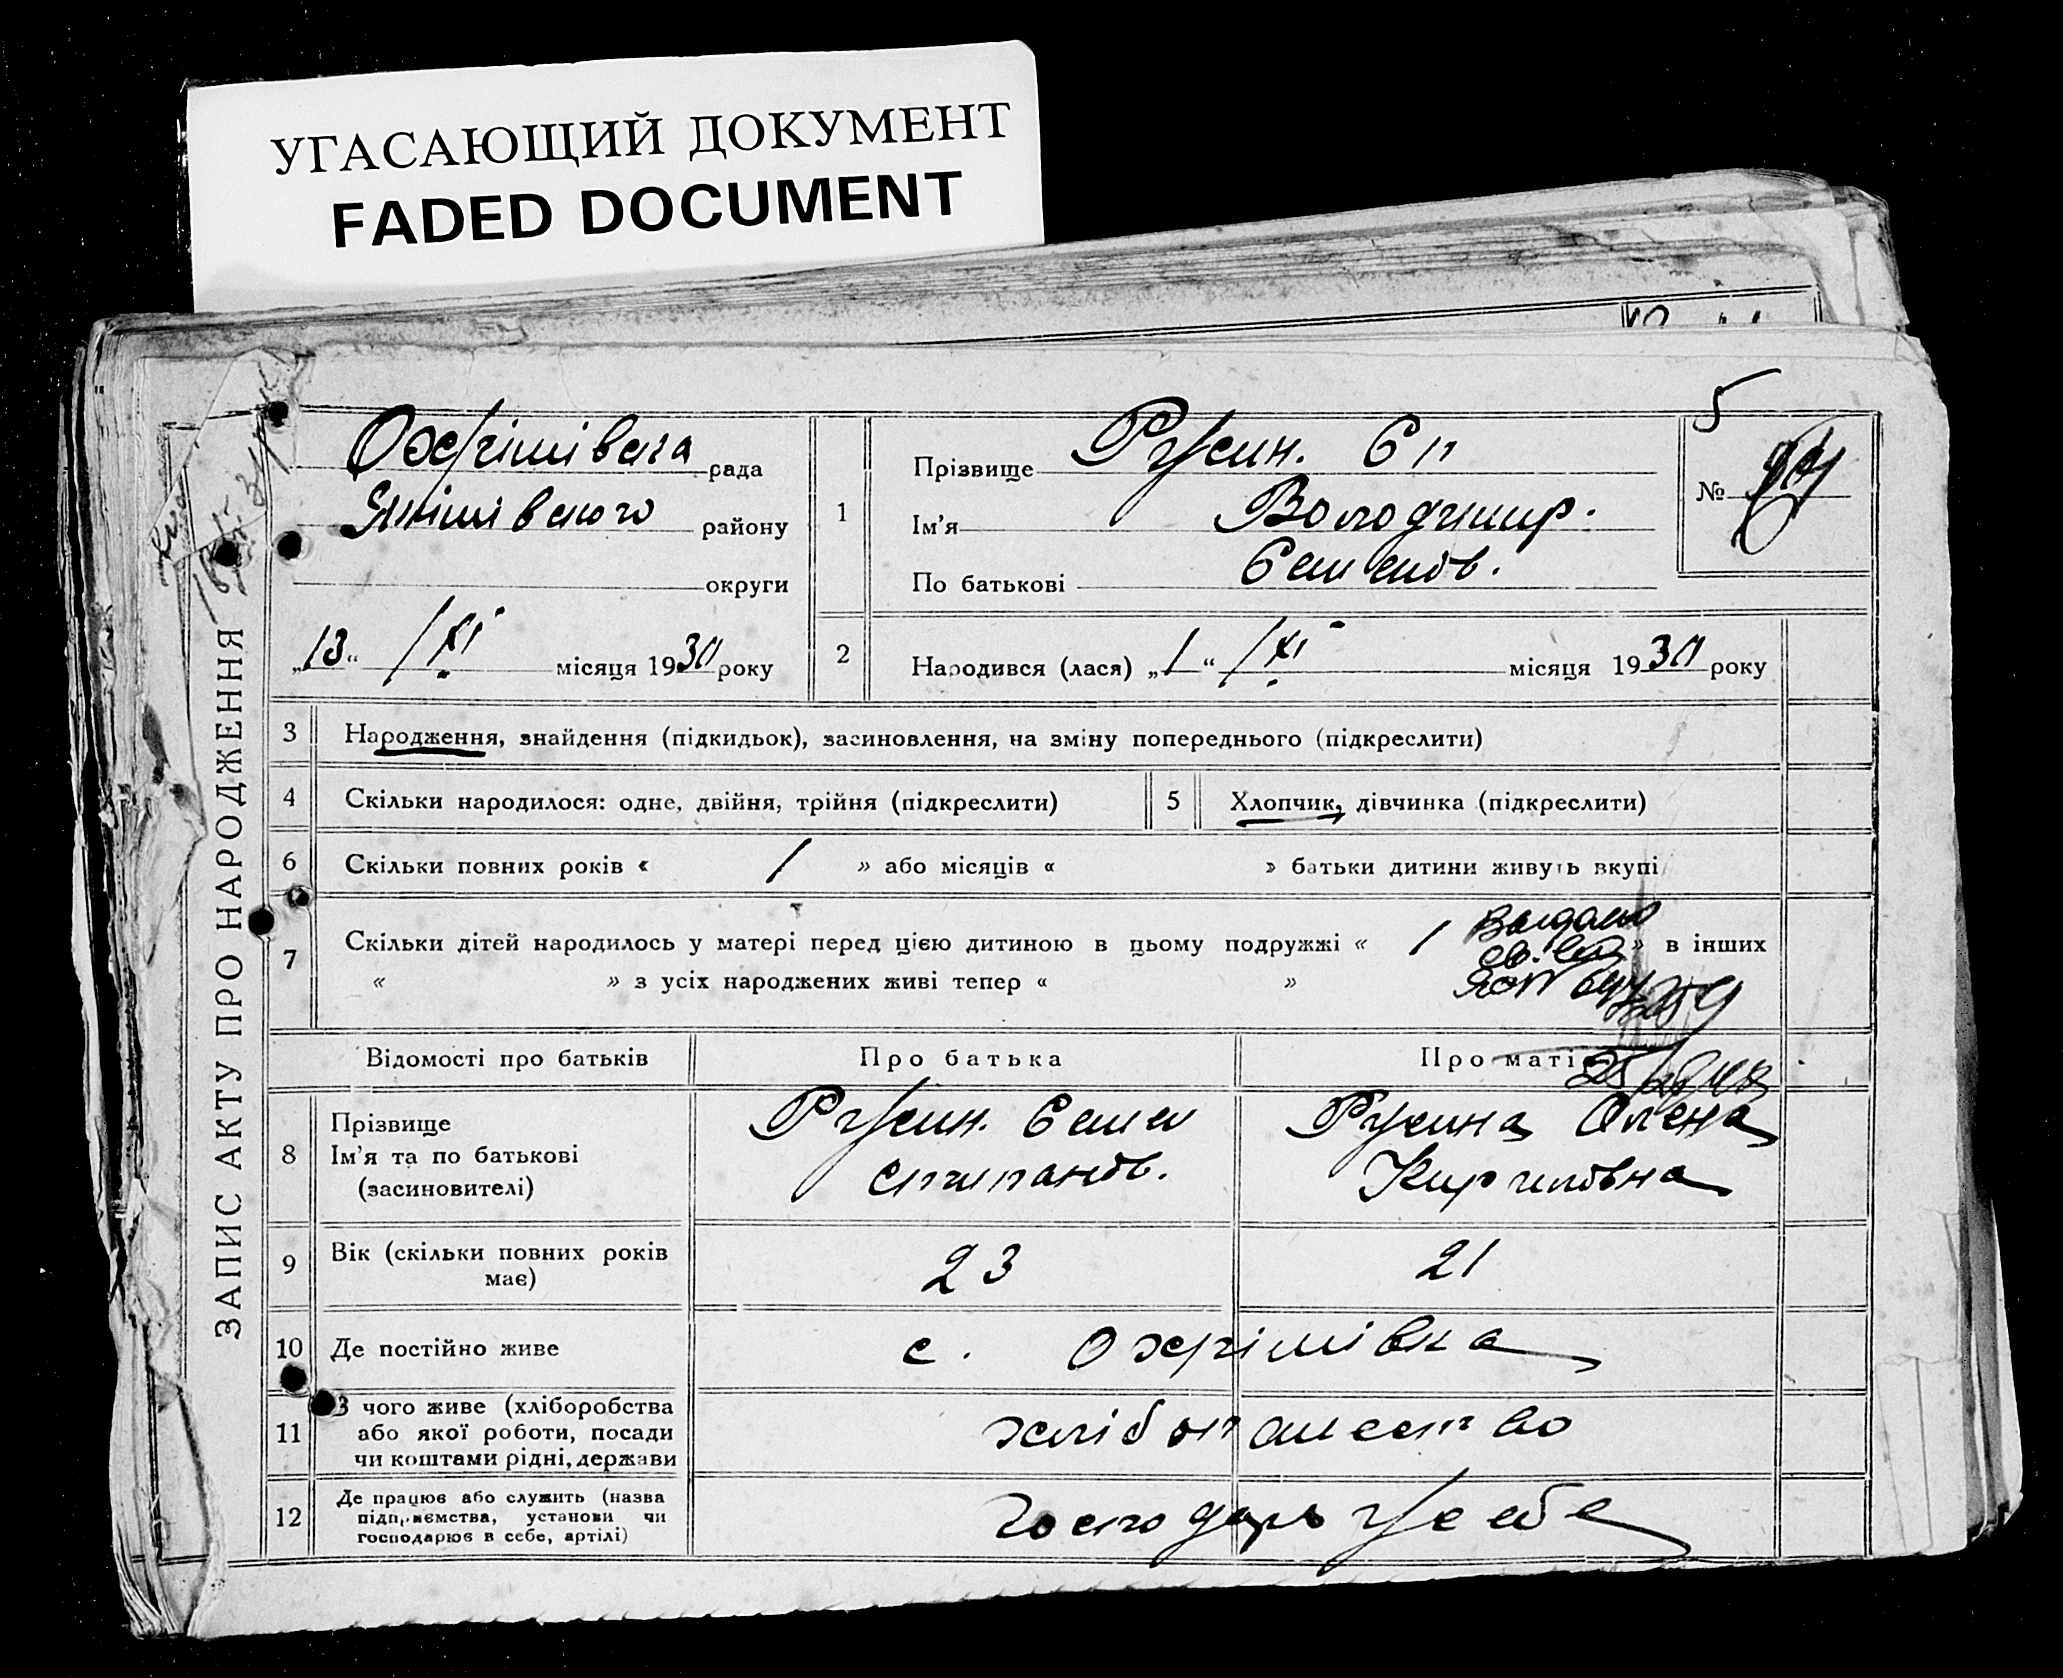 УГАСАЮЩИЙ ДОКУМЕНТ
FADED DOCUMENT
ЗАПИС АКТУ ПРО НАРОДЖЕННЯ
Охрімівська рада
району
округи
„13“ /XI місяця 1930 року
1
Прізвище Русин.
Ім'я Володимир.
По батькові Семенов.
5
№
2
Народився (лася) „1“ /XI місяця 1930 року
3 Народження, знайдення (підкидьок), засиновлення, на зміну попереднього (підкреслити)
4 Скільки народилося: одне, двійня, трійня (підкреслити) 5 Хлопчик, дівчинка (підкреслити)
6 Скільки повних років « 1 » або місяців « » батьки дитини живуть вкупі
7 Скільки дітей народилось у матері перед цією дитиною в цьому подружжі « 1 » в інших
« » з усіх народжених живі тепер « »
Відомості про батьків Про батька Про матір
8 Прізвище
Ім'я та по батькові
(засиновителі)
Русин. Семен
Степанов.
Русина Олена
Кириловна
9 Вік (скільки повних років
має)
23 21
10 Де постійно живе с. Охрімівка
11 З чого живе (хліборобства
або якої роботи, посади
чи коштами рідні, держави
12 Де працює або служить (назва
підприємства, установи чи
господарює в себе, артілі)
господарь у себе